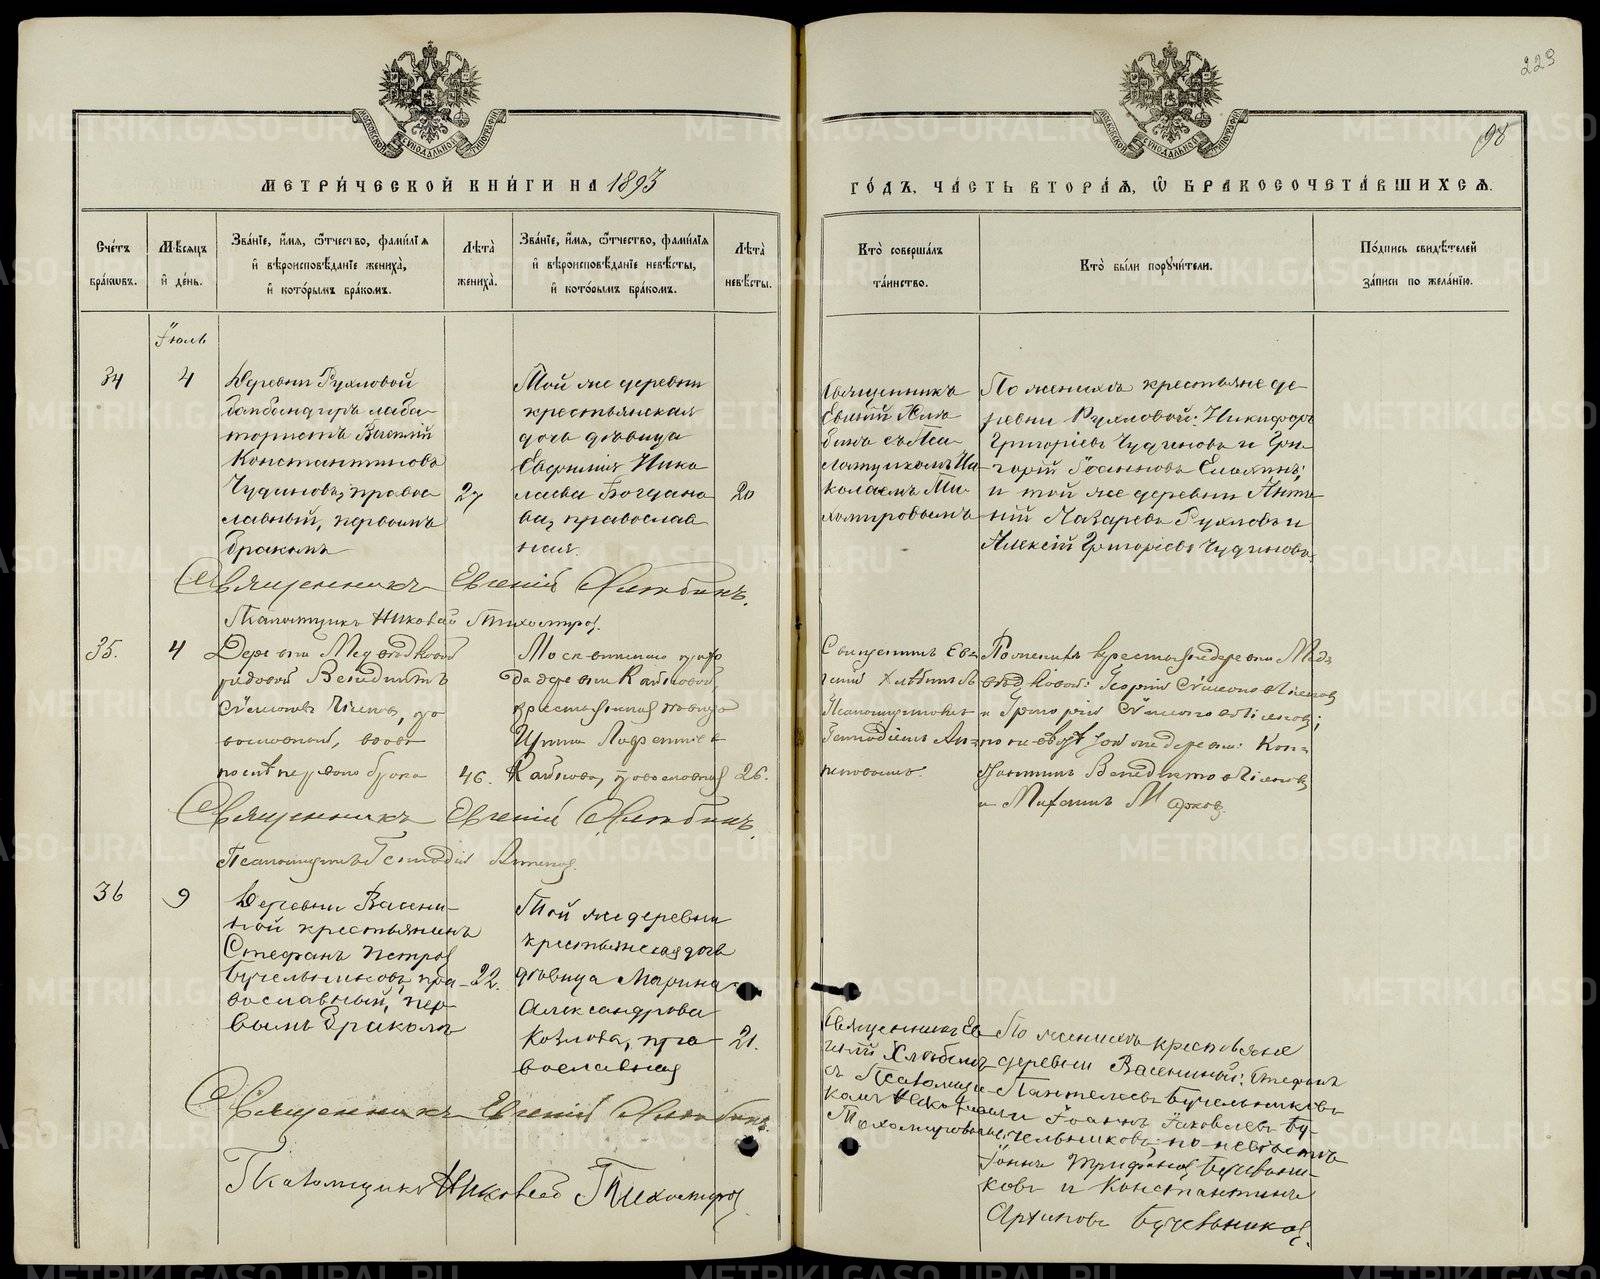 223
98
МЕТРИ́ЧЕСКОЙ КНИ́ГИ НА 1893
ГО́ДЪ, ЧА́СТЬ ВТОРА́Я, Ѽ БРАКОСОЧЕТА́ВШИХСЯ.
Сче́тъ бра́кωвъ.
Мѣ́сяцъ и҆ де́нь.
Зва́нїе, и҆́мя, ѻ҆́тчество, фами́лїя
и҆ вѣроисповѣ́данїе жениха̀,
и҆ кото́рымъ бра́комъ.
Лѣта̀ жениха̀.
Зва́нїе, и҆́мя, ѻ҆́тчество, фами́лїя
и҆ вѣроисповѣ́данїе невѣ́сты,
и҆ кото́рымъ бра́комъ.
Лѣта̀ невѣ́сты.
Кто̀ соверша́лъ
та́инство.
Кто̀ бы́ли порꙋчи́тели.
По́дпись свидѣ́телей
за́писи по жела́нїю.
Іюль
34
4
Деревни Рухловой
Константиновъ
Чудиновъ, правос
лавный, первымъ
бракомъ
27
Той же деревни
крестьянская
дочь дѣвица
Евфимія Нико
лаева Богдано
ва, православ
ная.
20
Священникъ
Евгеній Хлѣ
бинъ съ Пса
ломщикомъ Ни
колаемъ Ти
хомировымъ
По женихѣ крестьяне де
ревни Рухловой: Никифоръ
Григорьевъ Чудиновъ и Гри
горій
и той же деревни Анто
ній Лазаревъ Рухловъ и
Алексій Григорьевъ Чудиновъ
Священникъ Евгеній Хлѣбинъ.
Псаломщикъ Николай Тихомиров.
35.
4
Деревни Медвѣдковой
рядовой Венедиктъ
Сѵмеоновъ
вославный, вдовъ
послѣ перваго брака
46.
да деревни
крестьянская дѣвица
православная
26.
Священникъ Евге
ній Хлѣбинъ съ
Псаломщикомъ
Геннадіемъ
По женихѣ крестьяне деревни Мед
вѣдковой: Георгій Сѵмеоновъ
и Григорій Сѵмеоновъ
по невѣстѣ той же деревни: Кон
стантинъ Венедиктовъ
и Михаилъ
Священникъ Евгеній Хлѣбинъ.
Псаломщикъ Геннадій
36
9
Деревни Васени
ной крестьянинъ
Стефанъ Петров
Бучельниковъ, пра
вославный, пер
вымъ бракомъ
22.
Той же деревни
крестьянская дочь
дѣвица Марина
Александрова
Козлова, пра
вославная
21.
Священникъ Ев
геній Хлѣбинъ
съ Псаломщи
комъ Николаем
Тихомировымъ
По женихѣ крестьяне
деревни Васениной: Стефанъ
Пантелеевъ Бучельниковъ
и Іоаннъ Яковлевъ Бу
чельниковъ; по невѣстѣ
Іоаннъ Трифонов Бучельни
ковъ и Константинъ
Архиповъ Бучельников.
Священникъ Евгеній Хлѣбинъ.
Псаломщикъ Николай Тихомиров
METRIKI.GASO-URAL.RU